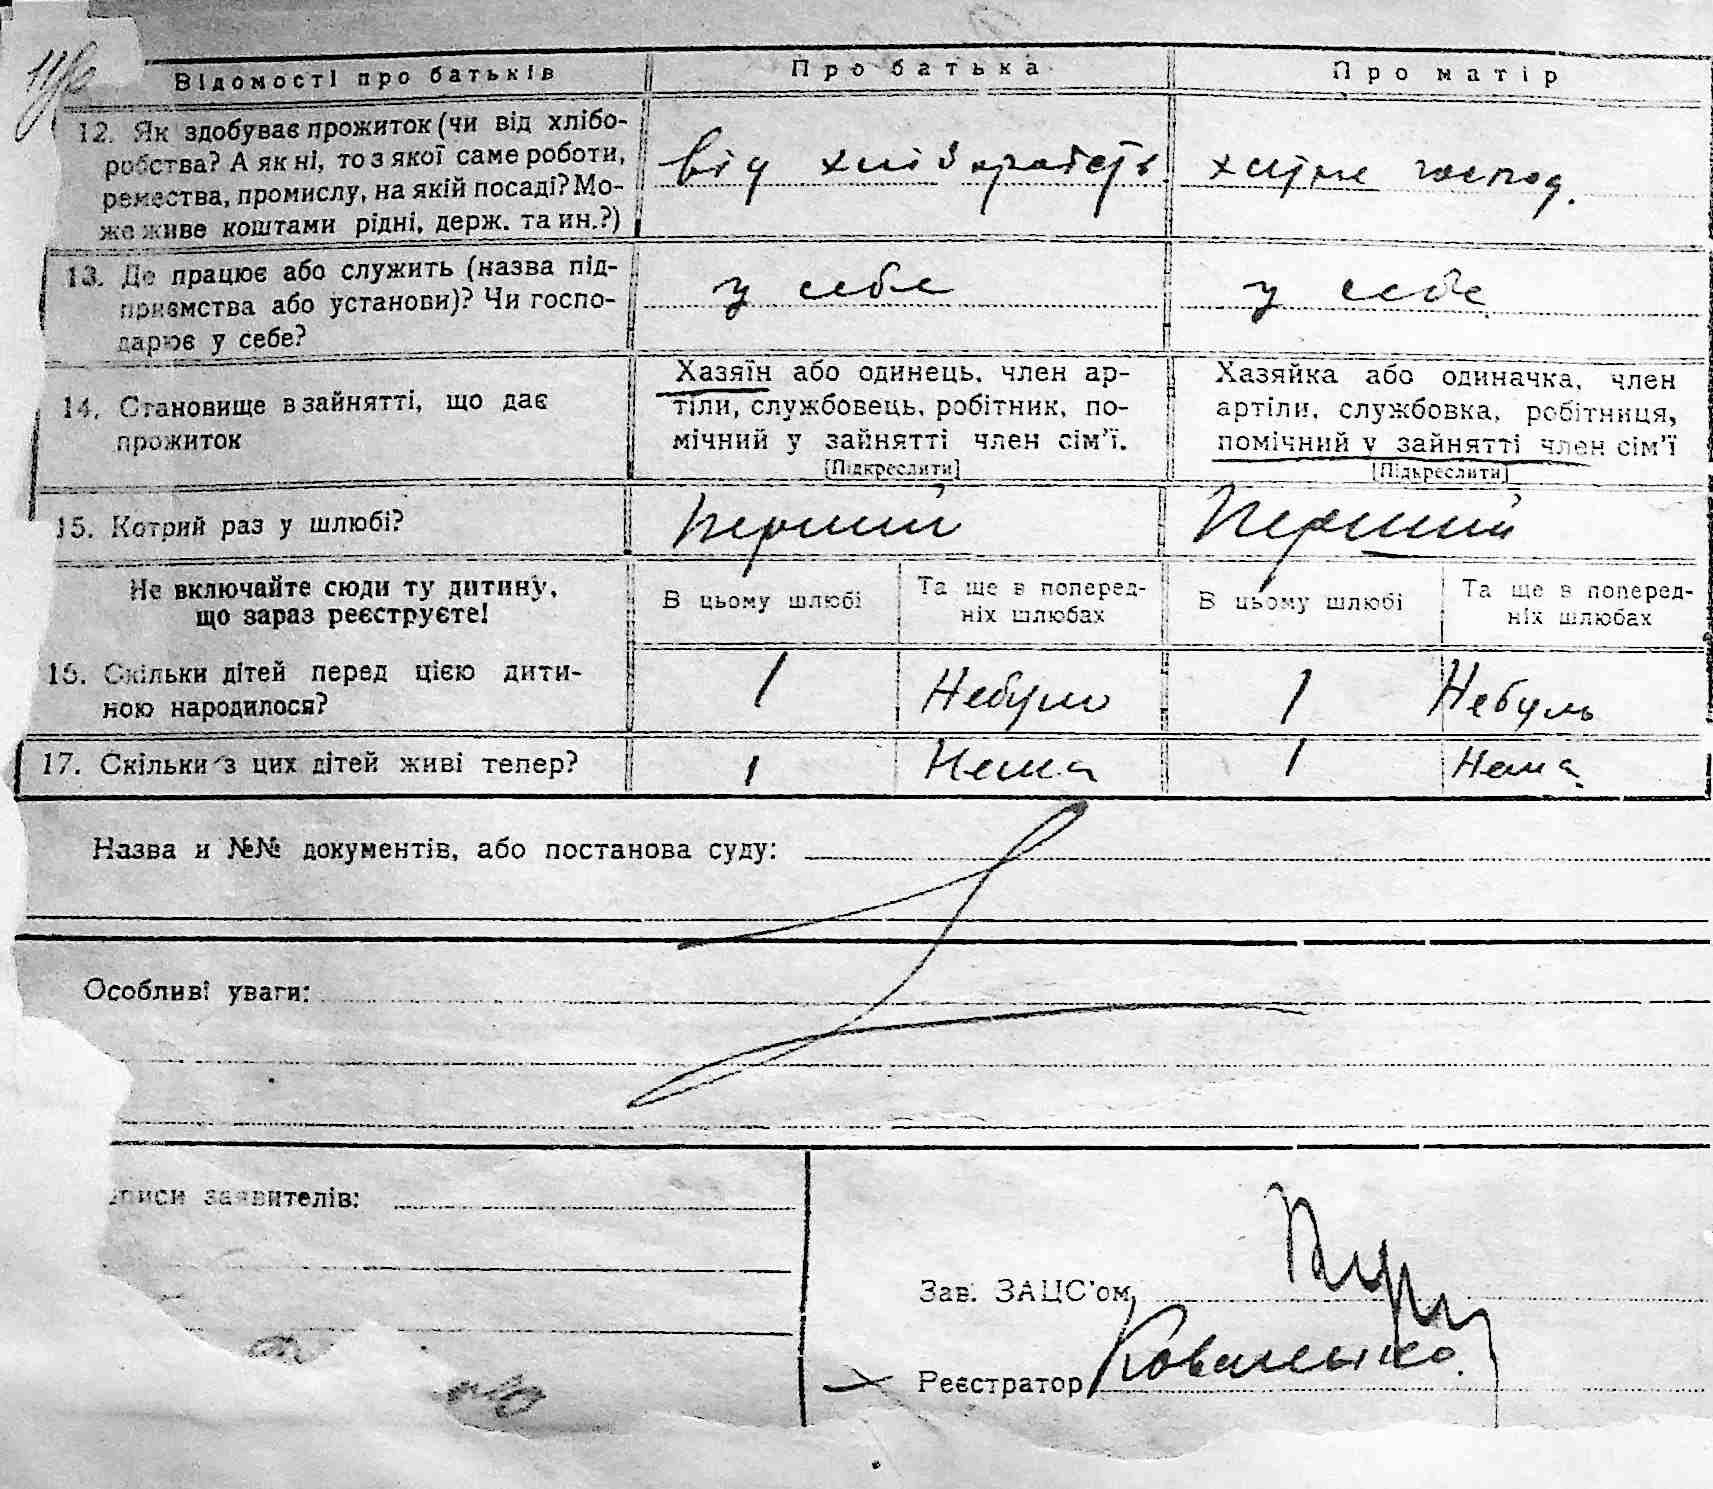 Відомості про батьків
Про батька
Про матір
12. Як здобуває прожиток (чи від хлібо-
робства? А як ні, то з якої саме роботи,
ремества, промислу, на якій посаді? Мо-
же живе коштами рідні, держ. та ин.?)
від
господ.
13. Де працює або служить (назва під-
приємства або установи)? Чи госпо-
дарює у себе?
у себе
у себе
14. Становище в зайнятті, що дає
прожиток
Хазяїн або одинець, член ар-
тіли, службовець, робітник, по-
мічний у зайнятті член сім'ї.
[Підкреслити]
Хазяйка або одиначка, член
артіли, службовка, робітниця,
помічний у зайнятті член сім'ї
[Підкреслити]
15. Котрий раз у шлюбі?
Перший
Перший
Не включайте сюди ту дитину,
що зараз реєструєте!
В цьому шлюбі
Та ще в поперед-
ніх шлюбах
В цьому шлюбі
Та ще в поперед-
ніх шлюбах
16. Скільки дітей перед цією дити-
ною народилося?
1
Небуло
1
Небуль
17. Скільки з цих дітей живі тепер?
1
Нема
1
Нема
Назва и №№ документів, або постанова суду:
Особливі уваги:
писи заявителів:
Зав. ЗАЦС'ом
Реєстратор Коваленко.